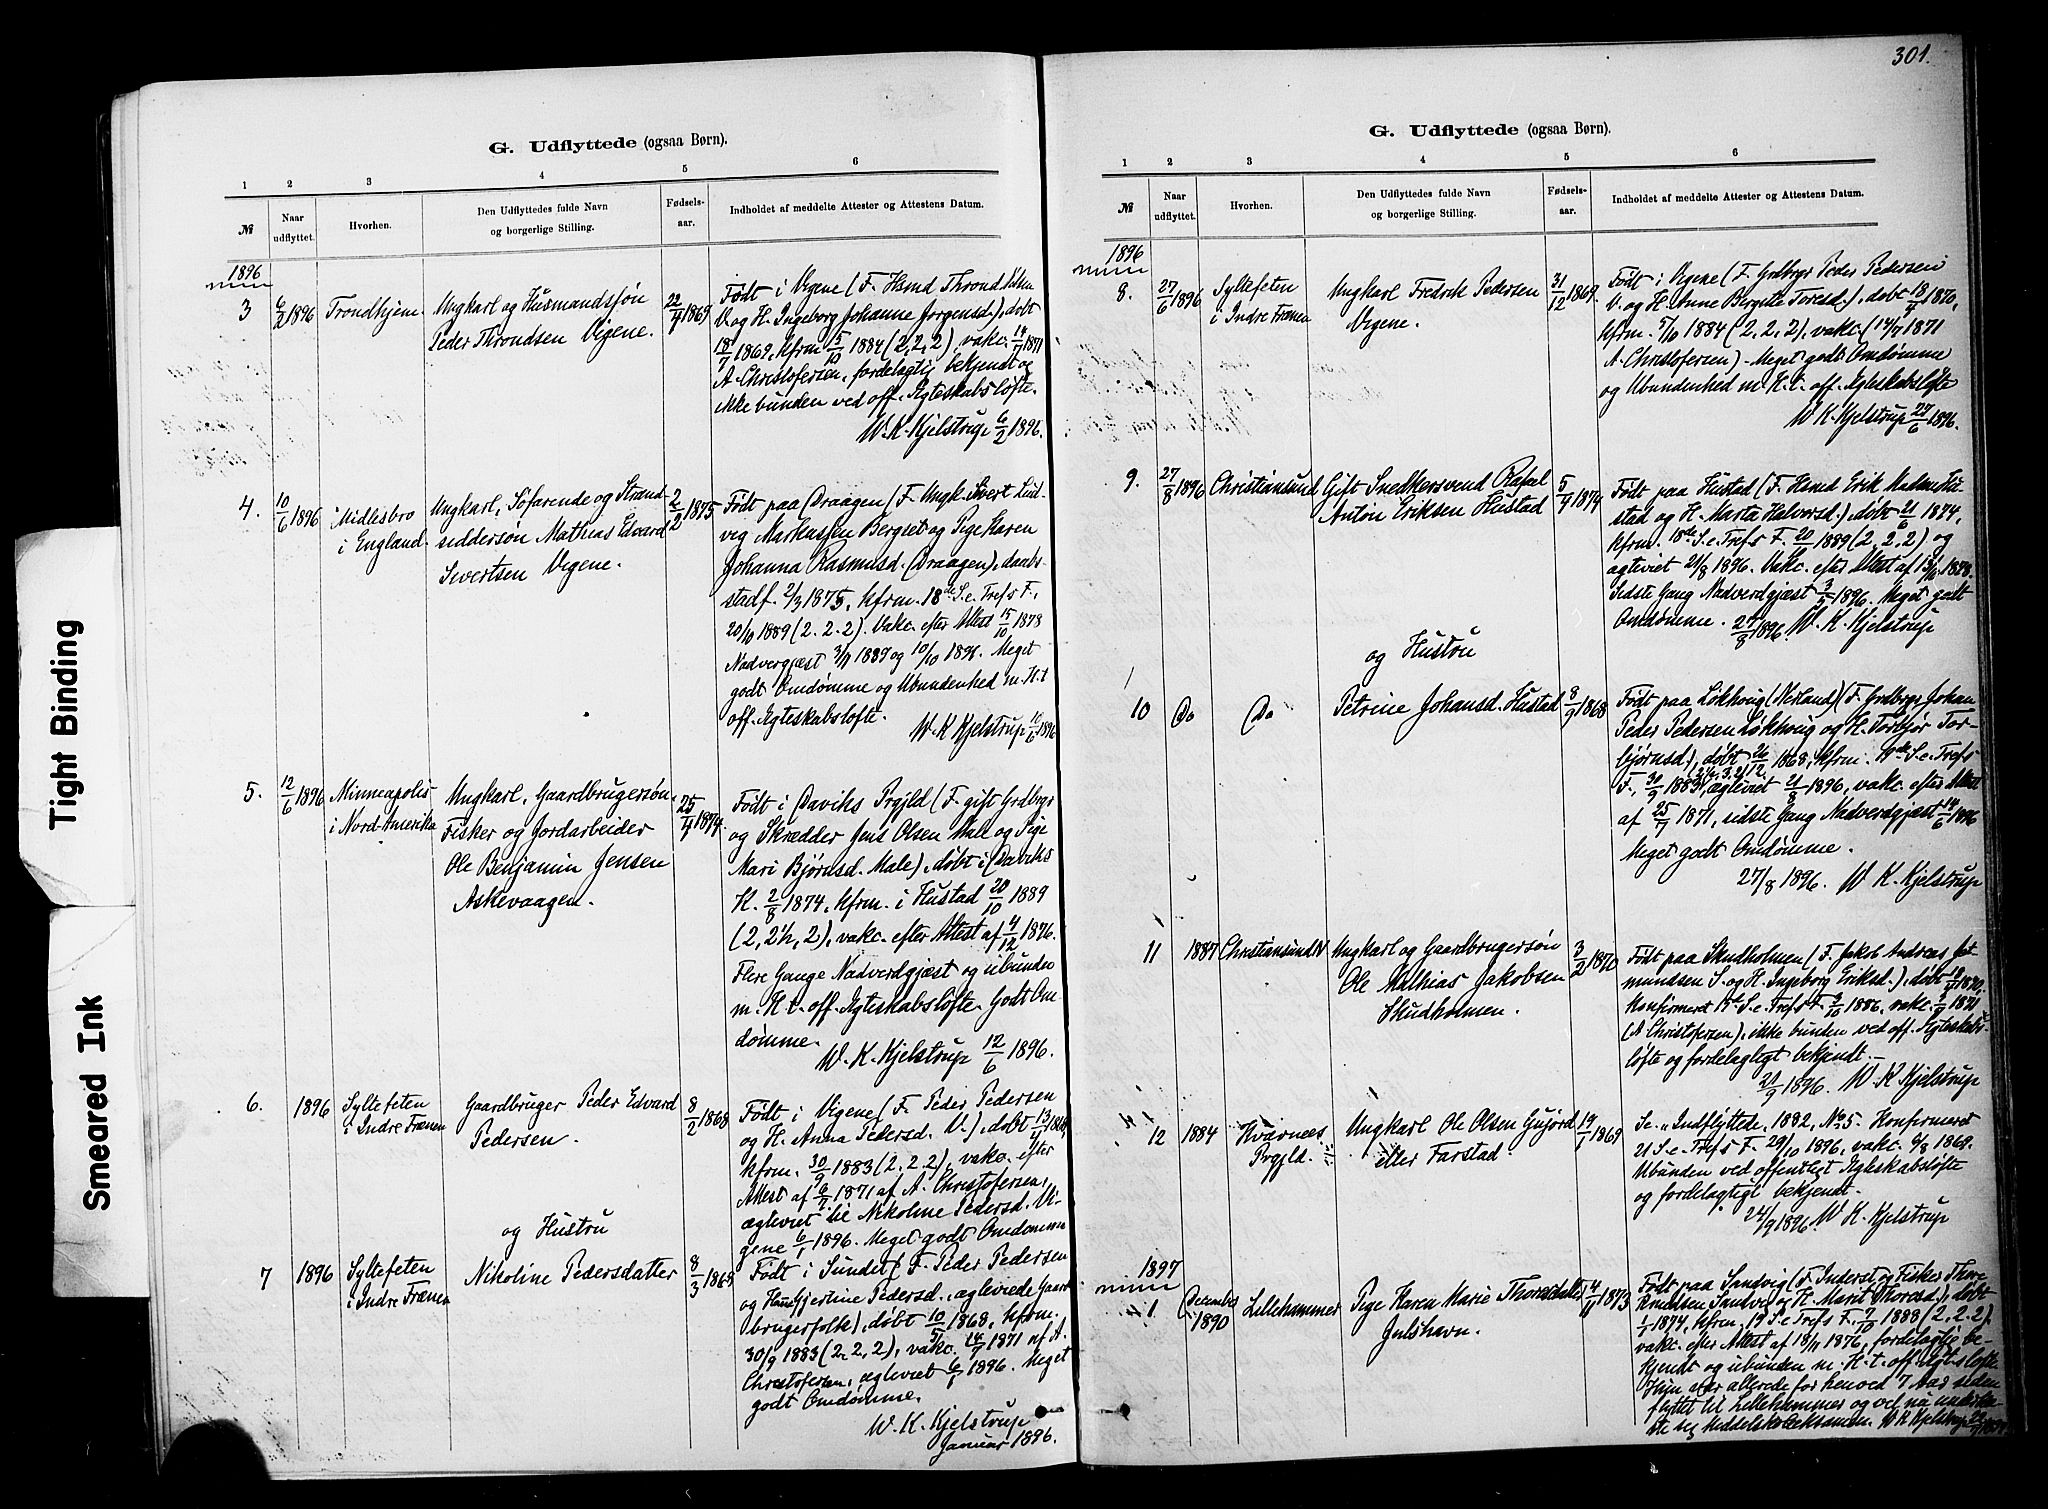 301.
G. Udflyttede (ogsaa Børn).
1 2 3 4 5 6
№ Naar udflyttet. Hvorhen. Den Udflyttedes fulde Navn og borgerlige Stilling. Fødsels-aar. Indholdet af meddelte Attester og Attestens Datum.
1896
3 6/2 1896 Trondhjem Ungkarl og Husmandssøn
Peder Throndsen Vigene.
22/4 1869
Født i Vigene (F. Hsmd Thrond
V. og H. Ingeborg Johanne Jørgensd.), døbt
18/7 1869, kfrm 5/10 1884 (2, 2, 2), vakc. 14/7 1871
A. Christofersen, fordelagtig bekjendt og
ikke bunden ved off. Ægteskabsløfte.
W. K. Kjelstrup 6/2 1896.
4. 10/6 1896 Midlesbro
i England.
Ungkarl, Søfarende og Strand-
siddersøn Mathias Edvard
Sivertsen Vigene.
2/2 1875
Født paa Draagen (F. Ungk. Sivert Lud-
vig Markussen Bergset og Pige Karen
Johanna Rasmusd. Draagen), daabs-
stadf. 2/3 1875, kfrm. 18de S. e. Trefs F.,
20/10 1889 (2. 2. 2). Vakc. efter Attest 15/10 1878
Nadvergjæst 3/11 1889 og 10/10 1898. Meget
godt Omdømme og Ubundenhed m. H. t
off. Ægteskabsløfte.
W. K. Kjelstrup 10/6 1896
5. 12/6 1896 Minneapolis
i Nord-Amerika
Ungkarl, Gaardbrugersøn
Fisker og Jordarbeider
Ole Benjamin Jensen
Askevaagen.
25/4 1874.
Født i Daviks Prgjld (F. gift Grdbrgr
og Skrædder Jens Olsen Male og Pige
Mari Bjørnsd. Male), døbt i Daviks
K. 2/8 1874, kfrm. i Hustad 20/10 1889
(2, 2½, 2), vakc. efter Attest af 4/12 1876.
Flere Gange Nadverdgjæst og ubunden
m. H. t. off. Ægteskabsløfte. Godt Om-
dømme.
W. K. Kjelstrup 12/6 1896.
6. 1896 Syltefeten
i Indre Frænen
Gaardbruger Peder Edvard
Pedersen.
8/2 1868
Født i Vigene (F. Peder Pedersen
og H. Anna Pedersd. V.), døbt 13/4 1868,
kfrm. 30/9 1883 (2. 2. 2), vakc. efter
Attest af 6/7 1871 af A. Christofersen,
ægteviet til Nikoline Pedersd. Vi-
gene 6/1 1896. Meget godt Omdømme
og Hustru
7 1896 Syltefeten
i Indre Frænen
Nikoline Pedersdatter
8/3 1868
Født i Sundet (F. Peder Pedersen
og Gjertine Pedersd., ægteviede Gaard-
brugerfolk), døbt 10/5 1868, kfrm.
30/9 1883 (2. 2, 2), vakc. 14/7 1871 af A.
Christofersen, ægteviet 6/1 1896. Meget
godt Omdømme.
W. K. Kjelstrup
Januar 1896.
G. Udflyttede (ogsaa Børn).
1 2 3 4 5 6
№ Naar udflyttet. Hvorhen. Den Udflyttedes fulde Navn og borgerlige Stilling. Fødsels-aar. Indholdet af meddelte Attester og Attestens Datum.
1896
8. 27/6 1896 Syltefeten
i Indre Frænen
Ungkarl Fredrik Pedersen
Vigene.
31/12 1869.
Født i Vigene (F. Grdbrgr Peder Pedersen
V. og H. Anne Bergitte Toresd.), døbt 18/4 1870,
kfrm. 5/10 1884 (2, 2, 2), vakc. (14/7 1871
A. Christofersen) - Meget godt Omdømme
og Ubundenhed m. H. t. off. Ægteskabsløfte
W K. Kjelstrup 27/6 1896.
9. 27/8 1896 Christiansund
Gift Snedkersvend Rafal
Anton Eriksen Hustad
5/4 1874
Født paa Hustad (F. Hsmd Erik Hu-
stad og H. Marta Halvorsd.), døbt 21/6 1874,
kfrm. 18de S. e. Trefs F. 20/10 1889 (2. 2. 2) og
ægteviet 21/8 1896. Vakc. efter Attest af 1878.
Sidste Gang Nadverdgjæst 3/5 1896. Meget godt
Omdømme. 27/8 1896. W. K. Kjelstrup
og Hustru
10 Do Do
Petrine Johansd. Hustad
8/9 1868
Født paa Løkhvig (Nerland) (F. Grdbrgr Johan
Peder Pedersen Løkhvig og H. Torbjør Tor-
bjørnsd.), døbt 26/12 1868, kfrm. S. e. Trefs
F., 30/9 1883, ægteviet 21/8 1896, vakc. efter Attest
af 25/7 1871, sidste Gang Nadverdgjæst 14/6 1896
Meget godt Omdømme.
27/8 1896. W K. Kjelstrup
11 1887 Christiansund N
Ungkarl og Gaardbrugersøn
Ole Mathias Jakobsen
Skudholmen.
3/2 1870
Født paa Skudholmen (F. Jakob Andreas
mundsen S. og H. Ingeborg Eriksd.), døbt 1870,
Konfirmeret S. e. Trefs F. 3/10 1886, vakc. 1871
(A Christofersen), ikke bunden ved off. Ægteskabs-
løfte og fordelagtigt bekjendt.-
21/9 1896. W K Kjelstrup
12 1884 Kvernes
Prgjld.
Ungkarl Ole Olsen Gujord
eller Farstad.
19/1 1869
Se „Indflyttede, 1882, No 5. Konfirmeret
21 S. e. Trefs F. 29/10 1896, vakc. 9/8 1869.
Ubunden ved offentligt Ægteskabsløfte
og fordelagtigt bekjendt.
24/9 1896. W K. Kjelstrup
1897
1 Decemb. 1890 Lillehammer
Pige Karen Marie Thoresdatter
Julshavn.
4/11 1873
Født paa Sandvig (F. Inderst og Fisker Thore
Knudsen Sandvig og H. Marit Thoresd.), døbt
1/1 1874, kfrm. 19 S. e. Trefs F. 7/10 1888 (2. 2. 2)
vakc. efter Attest af 18/11 1876, fordelagtig be-
kjendt og ubunden m. H. t. off. Ægtsløfte
Hun var allerede for henved 7 Aar siden
flyttet til Lillehammer og vil nu underka-
ste sig Middelskoleeksamen. W K Kjelstrup
Tight Binding
Smeared Ink